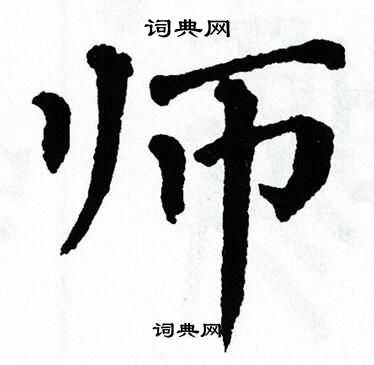 词典网
师
词典网